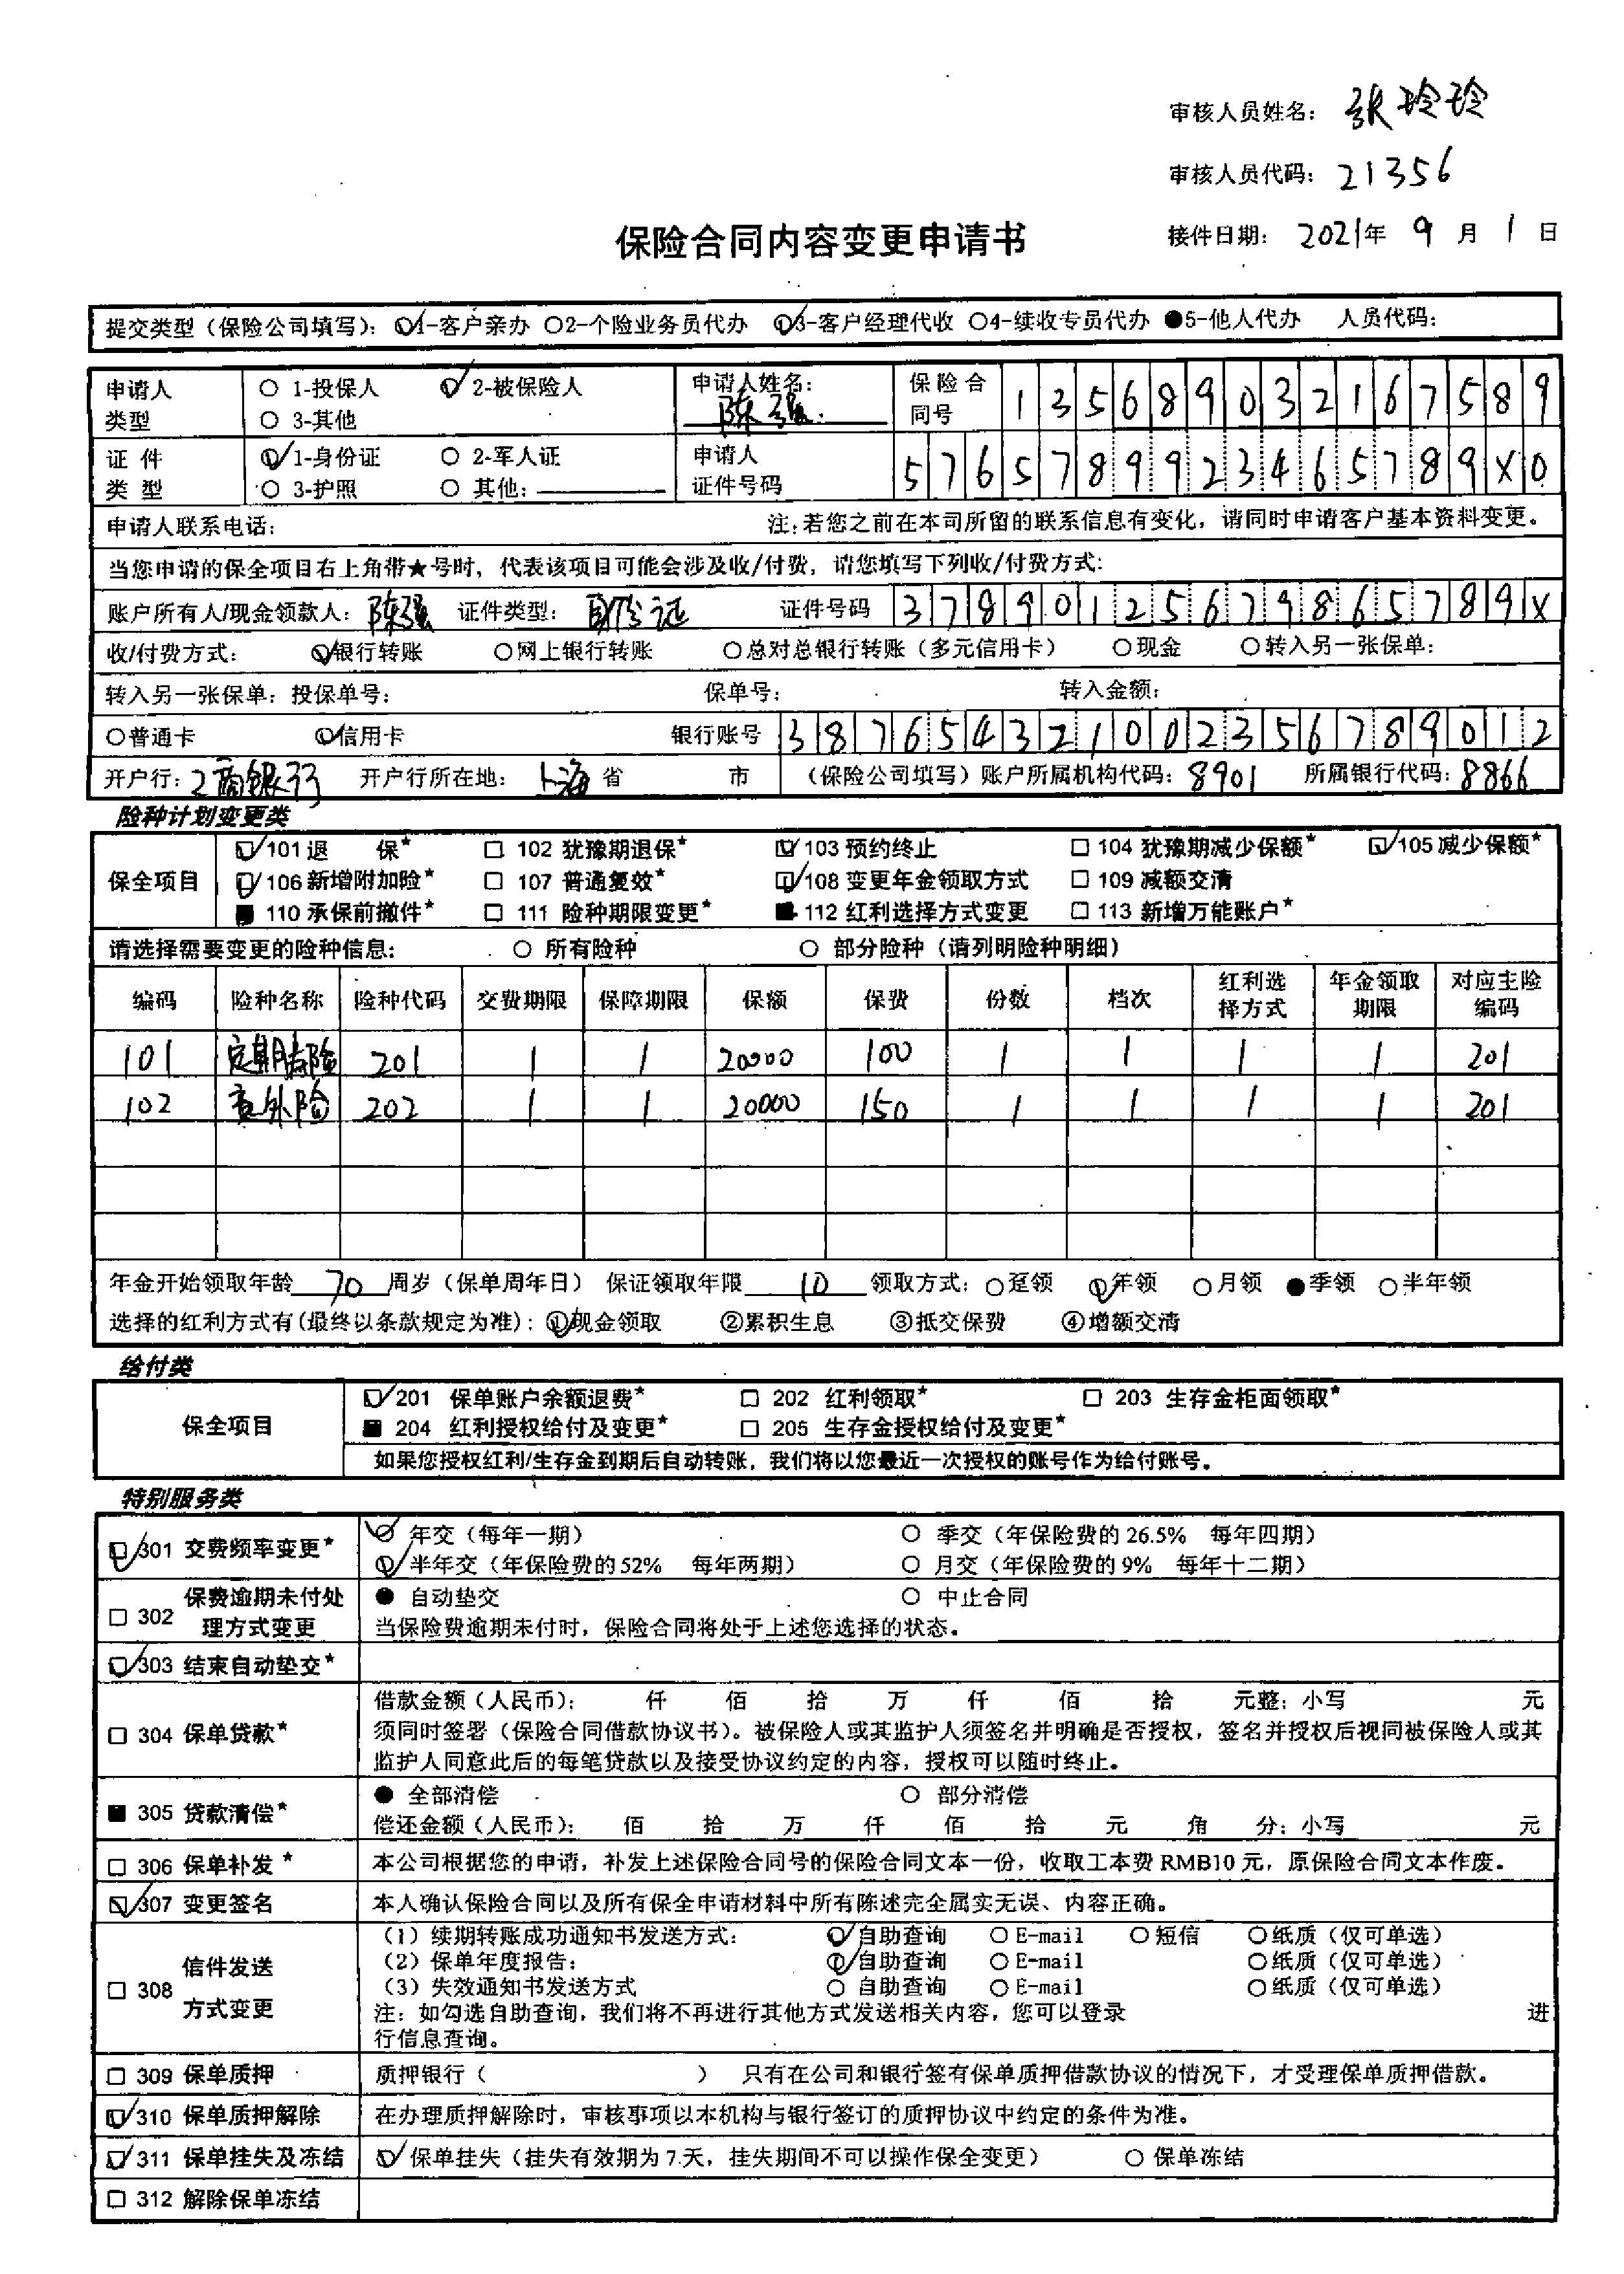 审核人员姓名： 张玲玲
审核人员代码： 21356
保险合同内容变更申请书
接件日期： 2021年 9 月 1 日
提交类型（保险公司填写）：☑1-客户亲办 ○2-个险业务员代办 ☑3-客户经理代收 ○4-续收专员代办 ●5-他人代办 人员代码：
申请人类型 ○ 1-投保人 ☑ 2-被保险人 ○ 3-其他 申请人姓名：陈强 保险合同号 135689032167589
证件类型 ☑ 1-身份证 ○ 2-军人证 ○ 3-护照 ○ 其他： 申请人证件号码 5765789923465789X0
申请人联系电话： 注：若您之前在本司所留的联系信息有变化，请同时申请客户基本资料变更。
当您申请的保全项目右上角带★号时，代表该项目可能会涉及收/付费，请您填写下列收/付费方式：
账户所有人/现金领款人：陈强 证件类型：身份证 证件号码 37890125679865789X
收/付费方式： ☑银行转账 ○网上银行转账 ○总对总银行转账（多元信用卡） ○现金 ○转入另一张保单：
转入另一张保单：投保单号： 保单号： 转入金额：
○普通卡 ☑信用卡 银行账号 387654321002356789012
开户行：工商银行 开户行所在地：上海 省 市 （保险公司填写）账户所属机构代码：8901 所属银行代码：8866
险种计划变更类
保全项目
☑101 退 保★ □ 102 犹豫期退保★ ☑ 103 预约终止 □ 104 犹豫期减少保额★ ☑105 减少保额★
☑106 新增附加险★ □ 107 普通复效★ ☑108 变更年金领取方式 □ 109 减额交清
■ 110 承保前撤件★ □ 111 险种期限变更★ ■ 112 红利选择方式变更 □ 113 新增万能账户★
请选择需要变更的险种信息： ○ 所有险种 ○ 部分险种（请列明险种明细）
编码 险种名称 险种代码 交费期限 保障期限 保额 保费 份数 档次 红利选择方式 年金领取期限 对应主险编码
101 定期寿险 201 1 1 20000 100 1 1 1 1 201
102 意外险 202 1 1 20000 150 1 1 1 1 201
年金开始领取年龄 70 周岁（保单周年日） 保证领取年限 10 领取方式：○趸领 ☑年领 ○月领 ●季领 ○半年领
选择的红利方式有(最终以条款规定为准)：①现金领取 ②累积生息 ③抵交保费 ④增额交清
给付类
保全项目
☑201 保单账户余额退费★ □ 202 红利领取★ □ 203 生存金柜面领取★
■ 204 红利授权给付及变更★ □ 205 生存金授权给付及变更★
如果您授权红利/生存金到期后自动转账，我们将以您最近一次授权的账号作为给付账号。
特别服务类
☑301 交费频率变更★ ☑ 年交（每年一期） ○ 季交（年保险费的 26.5% 每年四期）
☑ 半年交（年保险费的 52% 每年两期） ○ 月交（年保险费的 9% 每年十二期）
□ 302 保费逾期未付处理方式变更 ● 自动垫交 ○ 中止合同
当保险费逾期未付时，保险合同将处于上述您选择的状态。
☑303 结束自动垫交★
□ 304 保单贷款★ 借款金额（人民币）： 仟 佰 拾 万 仟 佰 拾 元整；小写 元
须同时签署（保险合同借款协议书）。被保险人或其监护人须签名并明确是否授权，签名并授权后视同被保险人或其
监护人同意此后的每笔贷款以及接受协议约定的内容，授权可以随时终止。
■ 305 贷款清偿★ ● 全部清偿 ○ 部分清偿
偿还金额（人民币）： 佰 拾 万 仟 佰 拾 元 角 分；小写 元
□ 306 保单补发★ 本公司根据您的申请，补发上述保险合同号的保险合同文本一份，收取工本费 RMB10 元，原保险合同文本作废。
☑307 变更签名 本人确认保险合同以及所有保全申请材料中所有陈述完全属实无误、内容正确。
□ 308 信件发送方式变更 （1）续期转账成功通知书发送方式： ☑自助查询 ○ E-mail ○ 短信 ○纸质（仅可单选）
（2）保单年度报告： ☑自助查询 ○ E-mail ○纸质（仅可单选）
（3）失效通知书发送方式 ○ 自助查询 ○ E-mail ○纸质（仅可单选）
注：如勾选自助查询，我们将不再进行其他方式发送相关内容，您可以登录 进
行信息查询。
□ 309 保单质押 质押银行（ ） 只有在公司和银行签有保单质押借款协议的情况下，才受理保单质押借款。
☑310 保单质押解除 在办理质押解除时，审核事项以本机构与银行签订的质押协议中约定的条件为准。
☑311 保单挂失及冻结 ☑ 保单挂失（挂失有效期为 7 天，挂失期间不可以操作保全变更） ○ 保单冻结
□ 312 解除保单冻结